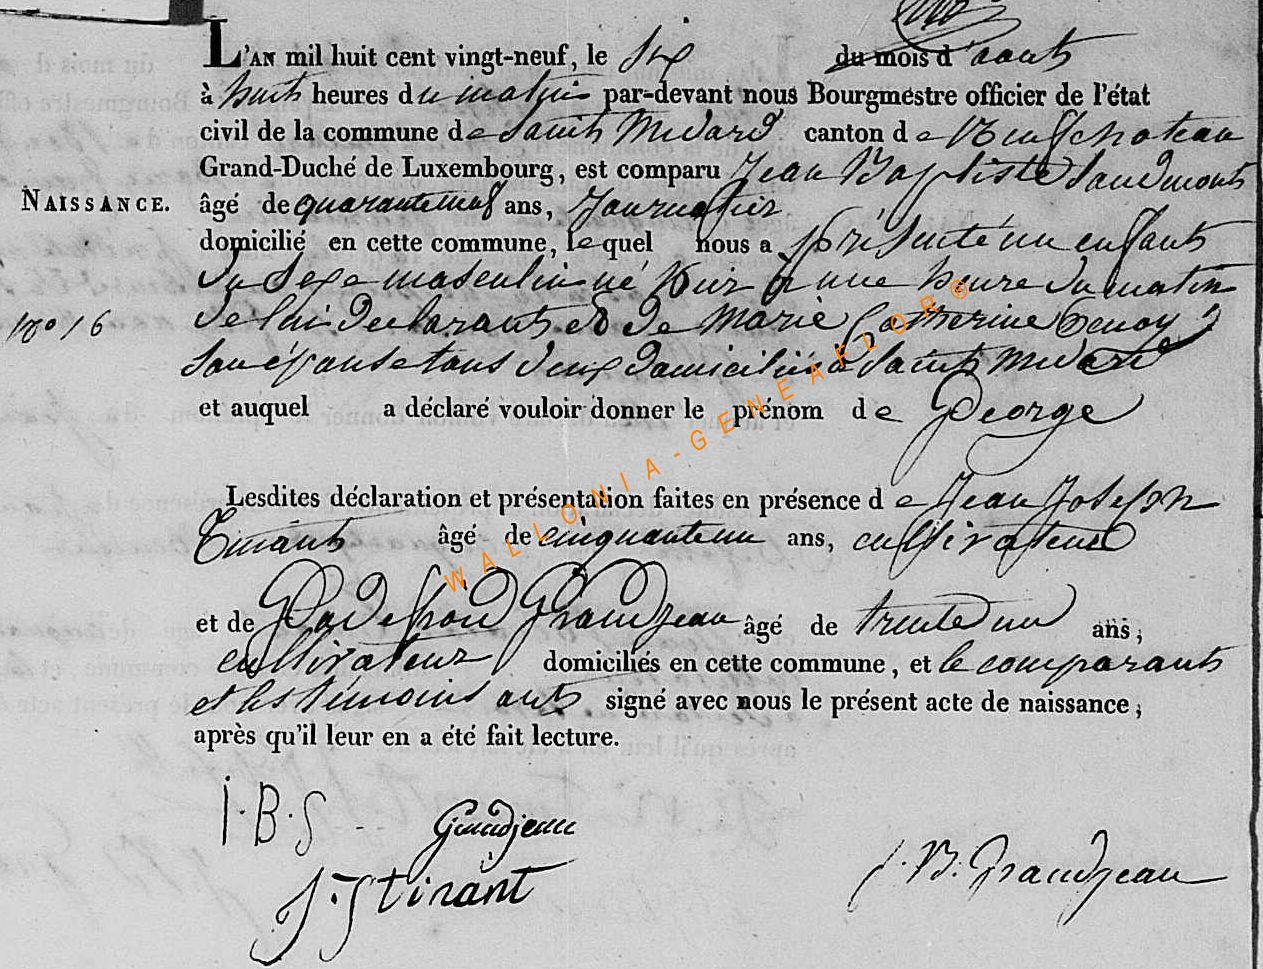 L'AN mil huit cent vingt-neuf, le Six du mois d'aout
à huit heures du matin par-devant nous Bourgmestre officier de l'état
civil de la commune de Saint Médard canton de Neufchateau
Grand-Duché de Luxembourg, est comparu Jean Baptiste Saudmont
NAISSANCE.
âgé de quaranteneuf ans, Journalier
domicilié en cette commune, lequel nous a présenté un enfant
du Sexe masculin né hier à une heure du matin
N° 16
de lui déclarant et de Marie Catherine
Son épouse tous deux domiciliés à Saint Médard
et auquel a déclaré vouloir donner le prénom de George
Lesdites déclaration et présentation faites en présence de Jean Joseph
Tinant âgé de cinquanteun ans, cultivateur
et de Godefroid Grandjean âgé de trenteun ans,
cultivateur domiciliés en cette commune, et le comparant
et les témoins ont signé avec nous le présent acte de naissance,
après qu'il leur en a été fait lecture.
J.B.S
Grandjean
J.J tinant
J.B. Grandjean
WALLONIA-GENEAFLOR©